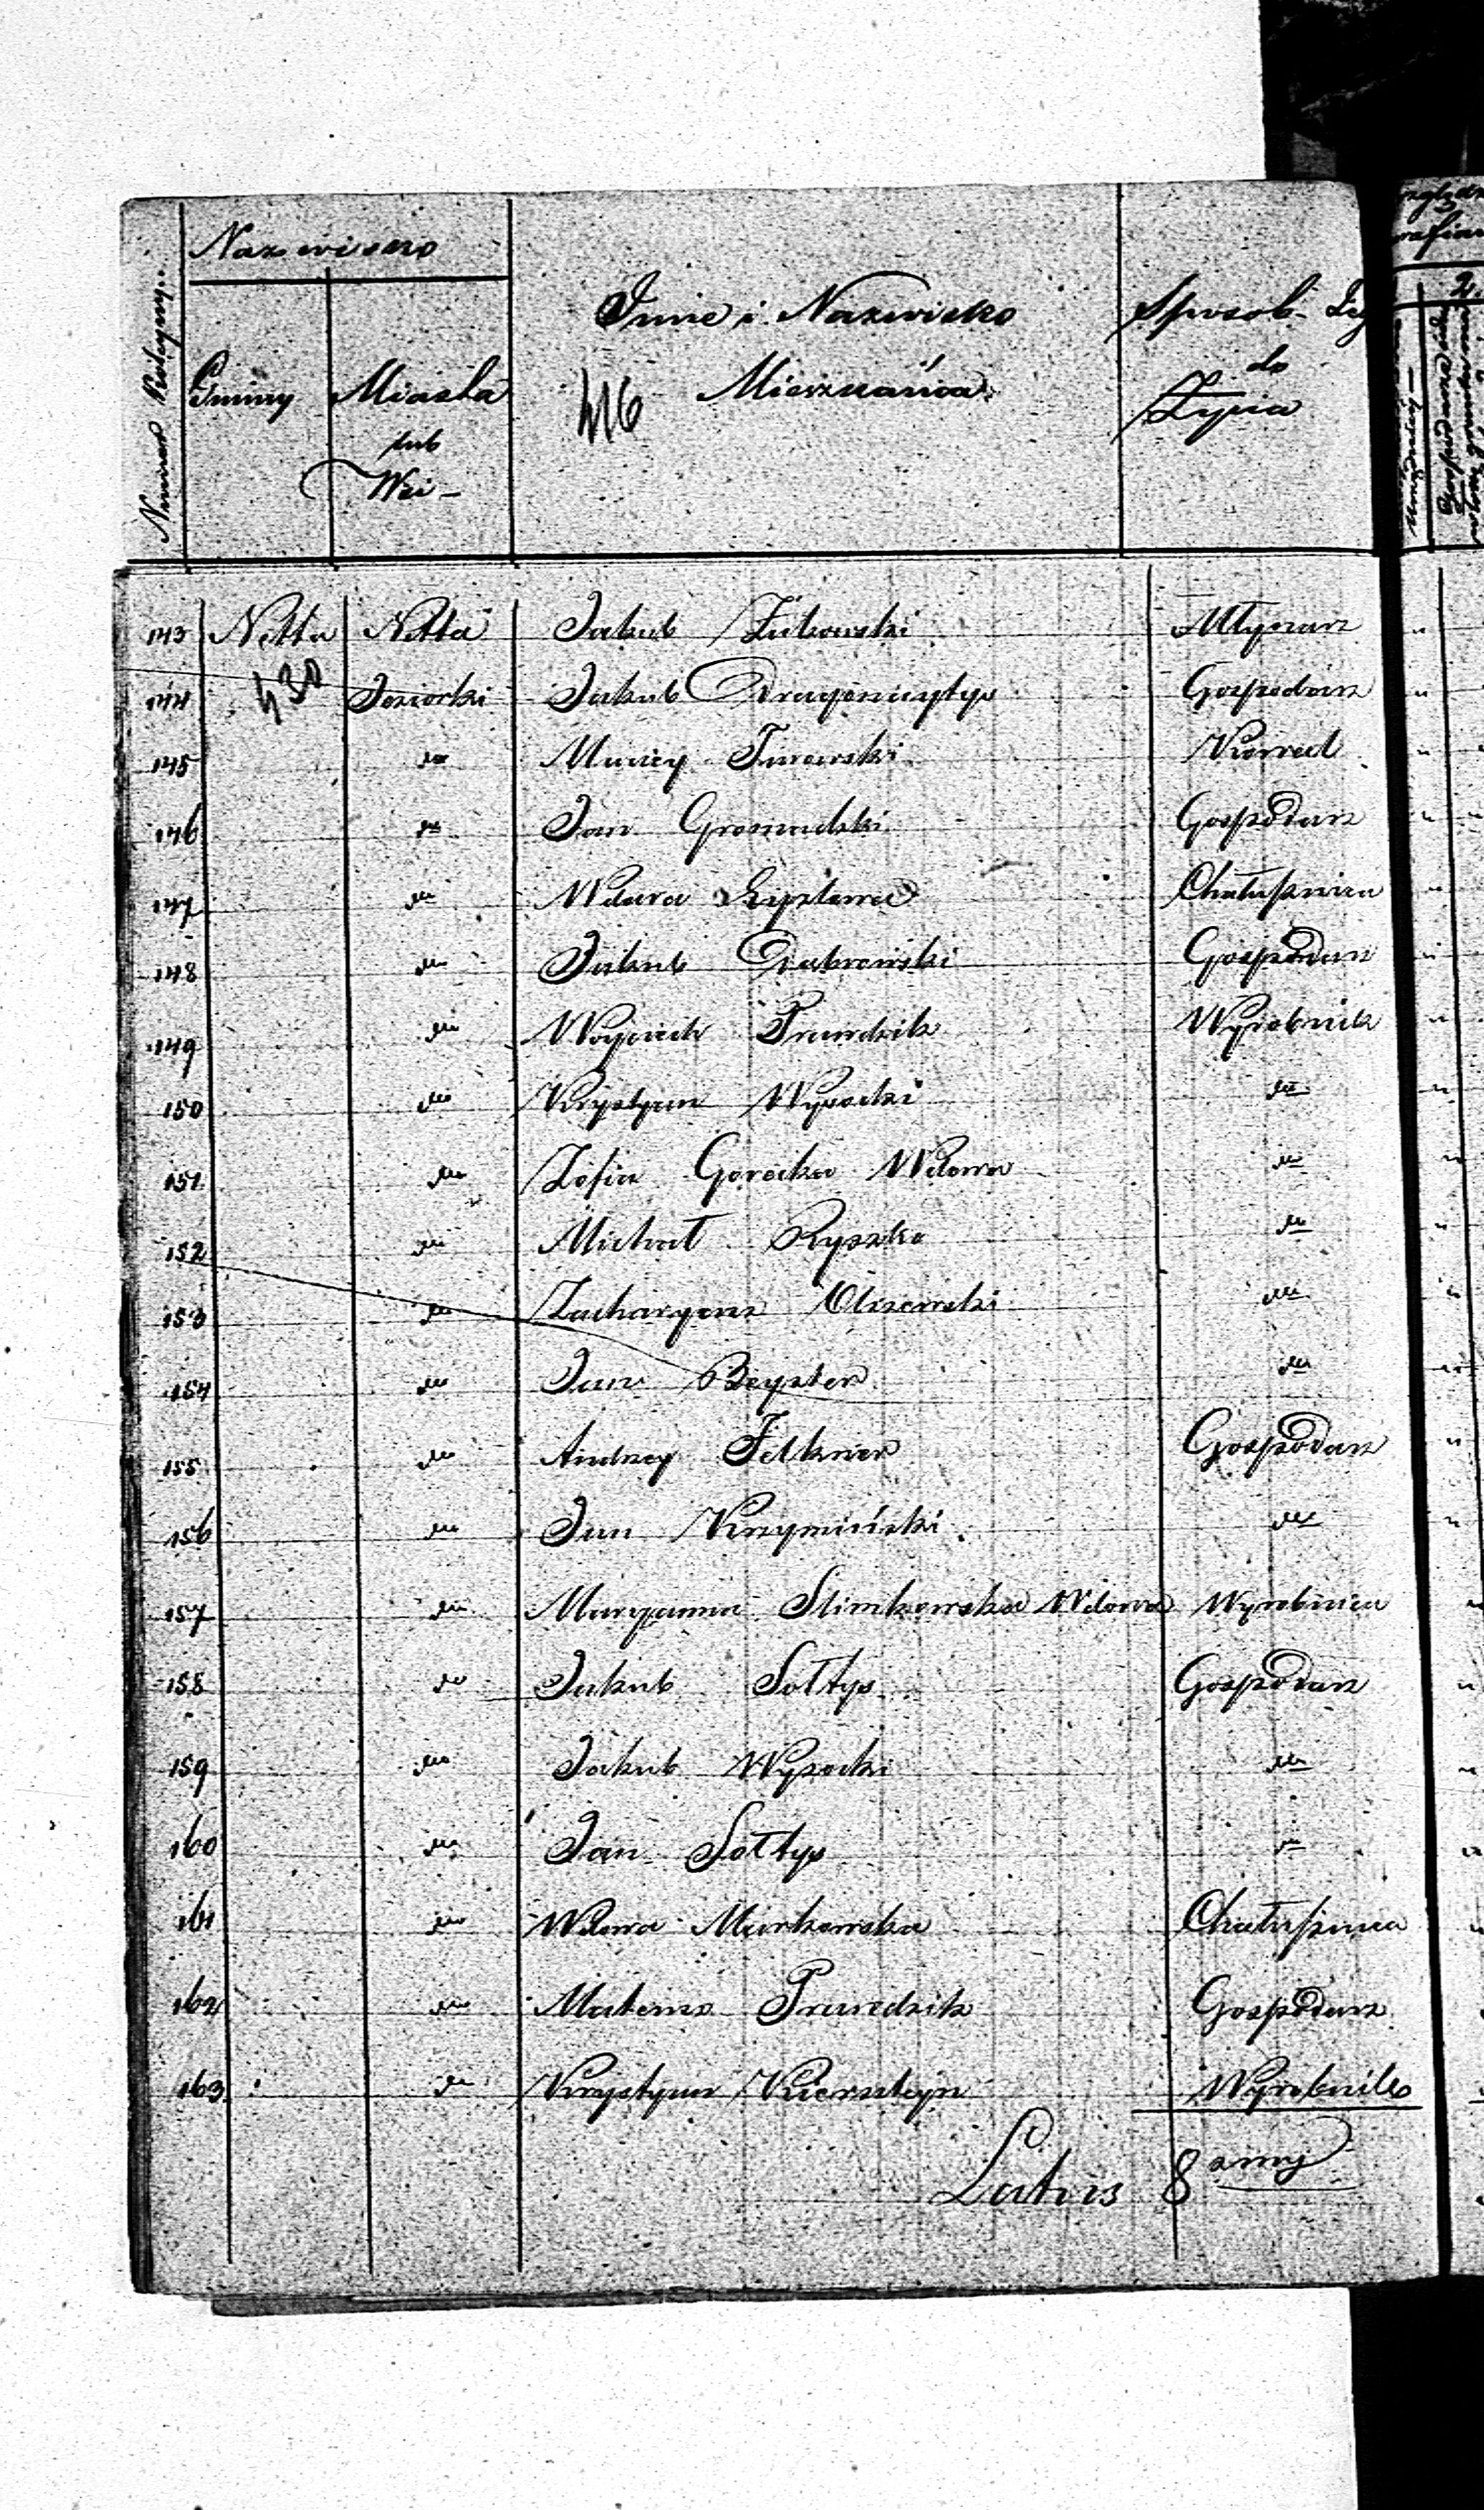 Numer Bieżący.
Nazwisko
Gminy
Miasta
lub
Wsi
Imie i Nazwisko
Mieszkańca
416
Sposob
do
Życia
143 Netta Netta Jakub Żukowski Młynarz
430
144 Jeziorki Jakub Gospodarz
145 " Maciey Turowski Kowal
146 " Jan Gromadzki Gospodarz
147 " Wdowa Chałupnica
148 " Jakub Dąbrowski Gospodarz
149 " Woyciech Prawdzik Wyrobnik
150 " Krystyan Wysocki "
151 " Zofia Gorecka Wdowa "
152 " Michał Ryszko "
153 " Zacharyasz Olszewski "
154 " Jan Beyster "
155 " Andrzey Felkner Gospodarz
156 " Jan Krzymiński "
157 " Maryanna Slimkowska Wdowa Wyrobnica
158 " Jakub Sołtys Gospodarz
159 " Jakub Wysocki "
160 " Jan Sołtys "
161 " Wdowa Murkowska Chałupnica
162 " Mateusz Prawdzik Gospodarz
163 " Krystyan Kierszteyn Wyrobnik
Latus 8